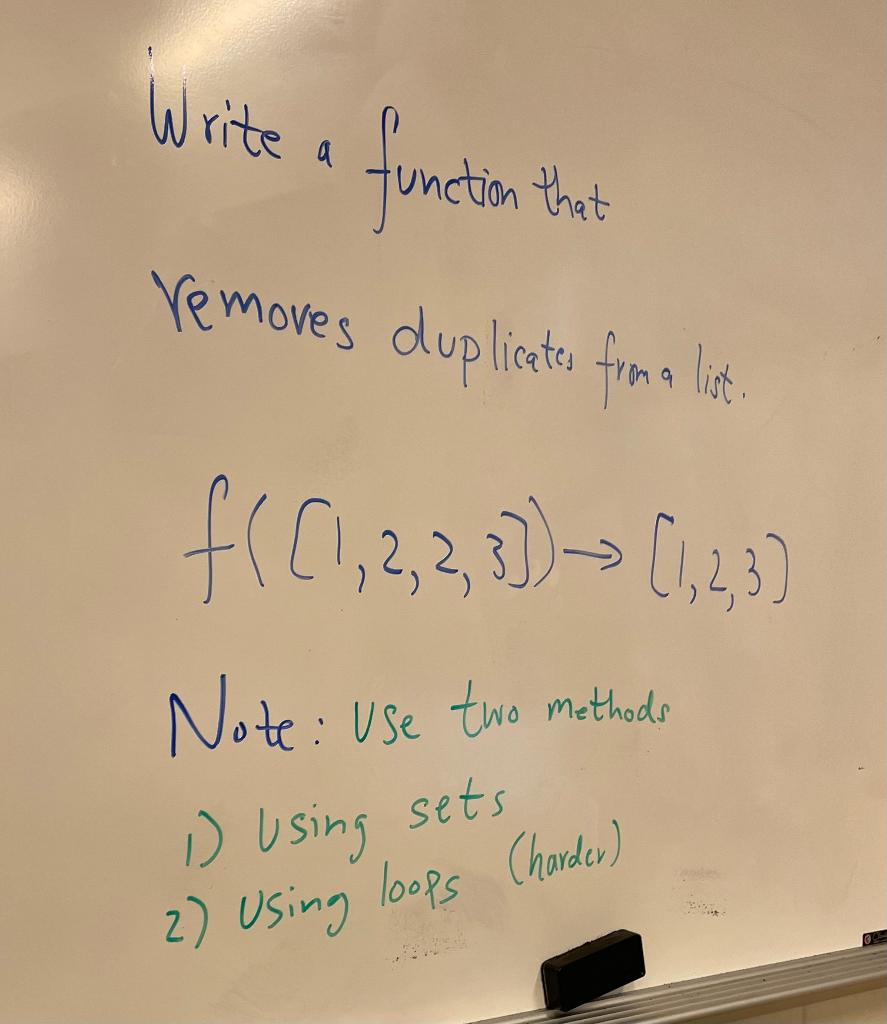 Write a function that
removes duplicates from a list.
f([1,2,2,3]) → [1,2,3]
Note: Use two methods
1) Using sets
2) Using loops (harder)